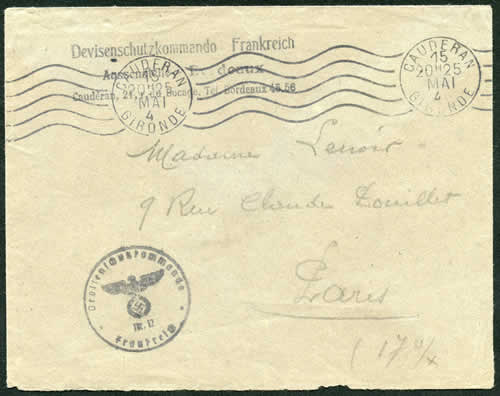 Devisenschutzkommando Frankreich
Bordeaux
Caudéran, Tel. Bordeaux 48.56
CAUDERAN
15
20H25
MAI
4
GIRONDE
CAUDERAN
15
20H25
MAI
4
GIRONDE
Madame Lenoir
9 Rue Claude Pouillet
Paris
(17e)
Nr. 12
Frankreich